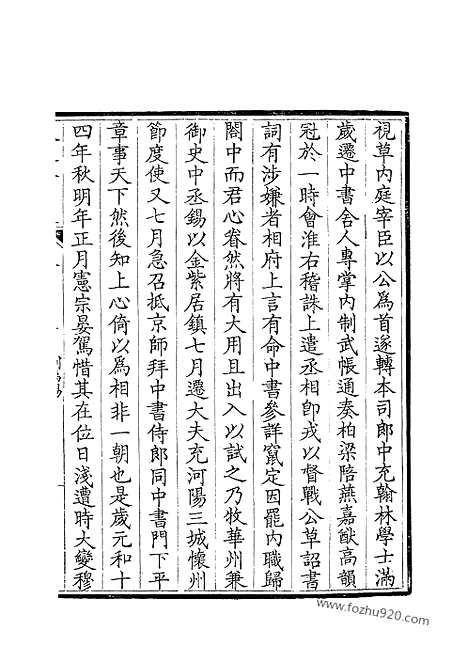 視草內庭宰臣以公爲首遂轉本司郎中充翰林學士滿
歲遷中書舍人專掌內制武帳通奏柏梁陪燕嘉猷高韻
冠於一時會淮右稽誅上遣丞相卽戎以督戰公草詔書
詞有涉嫌者相府上言有命中書參詳竄定因罷內職歸
閤中而君心眷然將有大用且出入以試之乃牧華州兼
御史中丞錫以金紫居鎮七月遷大夫充河陽三城懷州
節度使又七月急召抵京師拜中書侍郎同中書門下平
章事天下然後知上心倚以爲相非一朝也是歲元和十
四年秋明年正月憲宗晏駕惜其在位日淺遭時大變穆
www.fozhu920.com